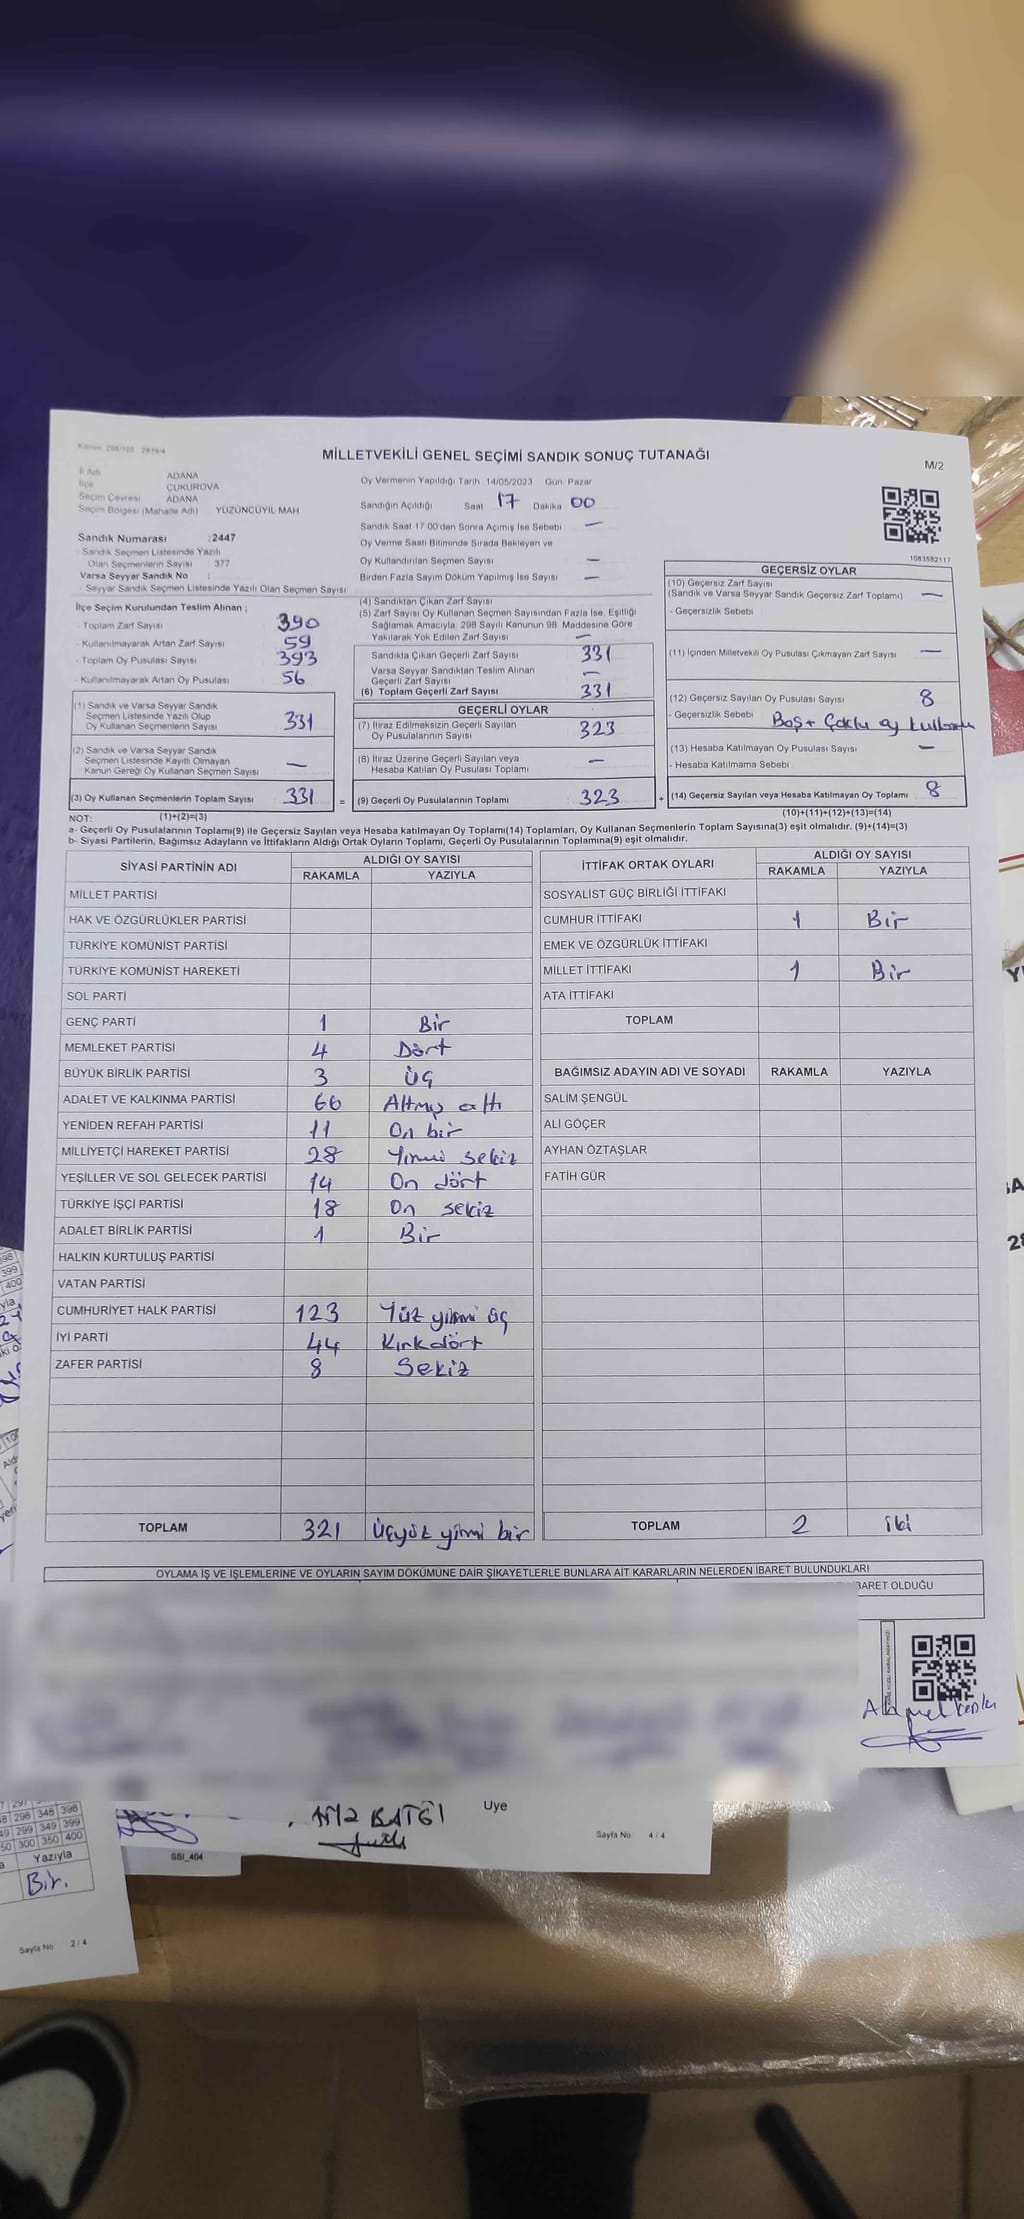 MİLLETVEKİLİ GENEL SEÇİMİ SANDIK SONUÇ TUTANAĞI
M/2
İl Adı ADANA
İlçe ÇUKUROVA
Seçim Çevresi ADANA
Seçim Bölgesi (Mahalle Adı) YÜZÜNCÜYIL MAH
Sandık Numarası :2447
- Sandık Seçmen Listesinde Yazılı
Olan Seçmenlerin Sayısı 377
Varsa Seyyar Sandık No :
- Seyyar Sandık Seçmen Listesinde Yazılı Olan Seçmen Sayısı
Oy Vermenin Yapıldığı Tarih 14/05/2023 Gün Pazar
Sandığın Açıldığı Saat 17 Dakika 00
Sandık Saat 17 00'den Sonra Açımış İse Sebebi —
Oy Verme Saati Bitiminde Sırada Bekleyen ve
Oy Kullandırılan Seçmen Sayısı —
Birden Fazla Sayım Döküm Yapılmış İse Sayısı —
1083582117
İlçe Seçim Kurulundan Teslim Alınan ;
- Toplam Zarf Sayısı 390
- Kullanılmayarak Artan Zarf Sayısı 59
- Toplam Oy Pusulası Sayısı 393
- Kullanılmayarak Artan Oy Pusulası 56
(1) Sandık ve Varsa Seyyar Sandık
Seçmen Listesinde Yazılı Olup
Oy Kullanan Seçmenlerin Sayısı 331
(2) Sandık ve Varsa Seyyar Sandık
Seçmen Listesinde Kayıtlı Olmayan
Kanun Gereği Oy Kullanan Seçmen Sayısı —
(3) Oy Kullanan Seçmenlerin Toplam Sayısı 331 =
(4) Sandıktan Çıkan Zarf Sayısı
(5) Zarf Sayısı Oy Kullanan Seçmen Sayısından Fazla İse, Eşitliği
Sağlamak Amacıyla; 298 Sayılı Kanunun 98. Maddesine Göre
Yakılarak Yok Edilen Zarf Sayısı —
Sandıkta Çıkan Geçerli Zarf Sayısı 331
Varsa Seyyar Sandıktan Teslim Alınan
Geçerli Zarf Sayısı —
(6) Toplam Geçerli Zarf Sayısı 331
GEÇERLİ OYLAR
(7) İtiraz Edilmeksizin Geçerli Sayılan
Oy Pusulalarının Sayısı 323
(8) İtiraz Üzerine Geçerli Sayılan veya
Hesaba Katılan Oy Pusulası Toplamı —
(9) Geçerli Oy Pusulalarının Toplamı 323 +
GEÇERSİZ OYLAR
(10) Geçersiz Zarf Sayısı
(Sandık ve Varsa Seyyar Sandık Geçersiz Zarf Toplamı) —
- Geçersizlik Sebebi
(11) İçinden Milletvekili Oy Pusulası Çıkmayan Zarf Sayısı —
(12) Geçersiz Sayılan Oy Pusulası Sayısı 8
- Geçersizlik Sebebi Boş + Çoklu oy
(13) Hesaba Katılmayan Oy Pusulası Sayısı —
- Hesaba Katılmama Sebebi
(14) Geçersiz Sayılan veya Hesaba Katılmayan Oy Toplamı 8
NOT: (1)+(2)=(3) (10)+(11)+(12)+(13)=(14)
a- Geçerli Oy Pusulalarının Toplamı(9) ile Geçersiz Sayılan veya Hesaba katılmayan Oy Toplamı(14) Toplamları, Oy Kullanan Seçmenlerin Toplam Sayısına(3) eşit olmalıdır. (9)+(14)=(3)
b- Siyasi Partilerin, Bağımsız Adayların ve İttifakların Aldığı Ortak Oyların Toplamı, Geçerli Oy Pusulalarının Toplamına(9) eşit olmalıdır.
SİYASİ PARTİNİN ADI ALDIĞI OY SAYISI
RAKAMLA YAZIYLA
MİLLET PARTİSİ
HAK VE ÖZGÜRLÜKLER PARTİSİ
TÜRKİYE KOMÜNİST PARTİSİ
TÜRKİYE KOMÜNİST HAREKETİ
SOL PARTİ
GENÇ PARTİ 1 Bir
MEMLEKET PARTİSİ 4 Dört
BÜYÜK BİRLİK PARTİSİ 3 Üç
ADALET VE KALKINMA PARTİSİ 66 Altmış altı
YENİDEN REFAH PARTİSİ 11 On bir
MİLLİYETÇİ HAREKET PARTİSİ 28 Yirmi sekiz
YEŞİLLER VE SOL GELECEK PARTİSİ 14 On dört
TÜRKİYE İŞÇİ PARTİSİ 18 On sekiz
ADALET BİRLİK PARTİSİ 1 Bir
HALKIN KURTULUŞ PARTİSİ
VATAN PARTİSİ
CUMHURİYET HALK PARTİSİ 123 Yüz yirmi üç
İYİ PARTİ 44 Kırkdört
ZAFER PARTİSİ 8 Sekiz
TOPLAM 321 Üçyüz yirmi bir
İTTİFAK ORTAK OYLARI ALDIĞI OY SAYISI
RAKAMLA YAZIYLA
SOSYALİST GÜÇ BİRLİĞİ İTTİFAKI
CUMHUR İTTİFAKI 1 Bir
EMEK VE ÖZGÜRLÜK İTTİFAKI
MİLLET İTTİFAKI 1 Bir
ATA İTTİFAKI
TOPLAM
BAĞIMSIZ ADAYIN ADI VE SOYADI RAKAMLA YAZIYLA
SALİM ŞENGÜL
ALİ GÖÇER
AYHAN ÖZTAŞLAR
FATİH GÜR
TOPLAM 2 iki
OYLAMA İŞ VE İŞLEMLERİNE VE OYLARIN SAYIM DÖKÜMÜNE DAİR ŞİKAYETLERLE BUNLARA AİT KARARLARIN NELERDEN İBARET BULUNDUKLARI
BARET OLDUĞU
Üye
Sayfa No 4 / 4
SSI_404
298 348 398
299 349 399
300 350 400
Yazıyla
Bir.
Sayfa No 2 / 4